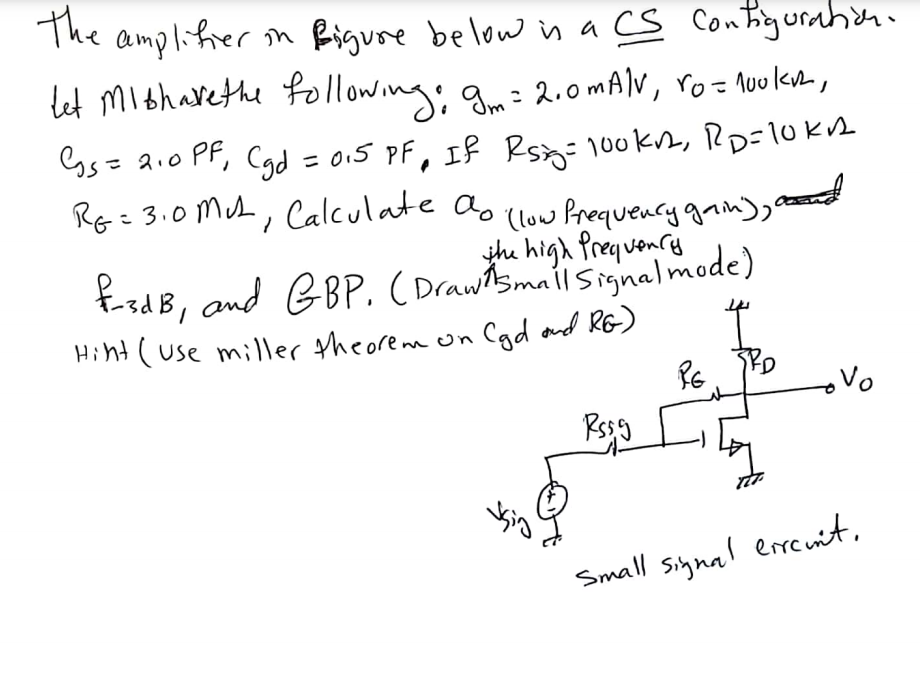 The amplifier in Figure below is a CS Configuration.
let M1 have the following: gm = 2.0 mA/V, ro = 100 kΩ,
Cgs = 2.0 PF, Cgd = 0.5 PF, If Rsig = 100 kΩ, RD = 10 kΩ
RG = 3.0 MΩ, Calculate ao (low frequency gain),
the high frequency
f-3dB, and GBP. (Draw small signal mode)
Hint (use miller theorem on Cgd and RG)
RD
RG
Vo
Rsig
Vsig
Small signal circuit.